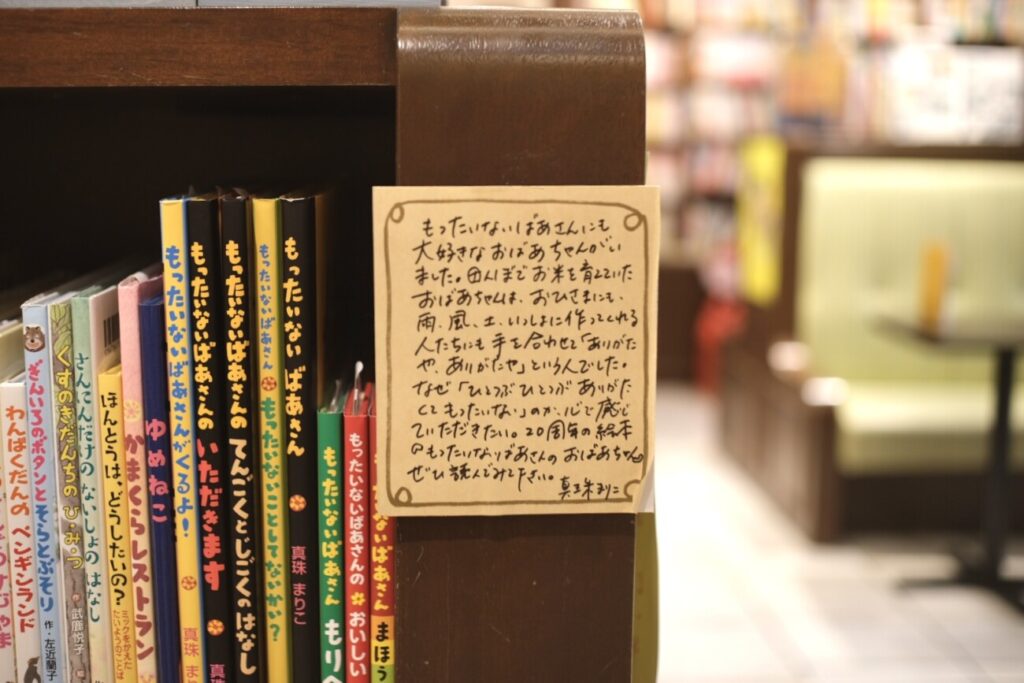 わんぱくだんの ペンギンランド
ぎんいろのボタンとそらとぶそり 作・左近蘭子
くすのきだんちの ひ・み・つ 作 武鹿悦子
さんにんだけの ないしょの はなし
ほんとうは、どうしたいの？ ミックがかえた たいようのことば
かまくらレストラン
ゆめねこ
もったいないばあさんがくるよ！ 真珠
もったいないばあさんの いただきます 真珠
もったいないばあさんの てんごくとじごくのはなし
もったいないばあさん もったいないことしてないかい？
もったいない ばあさん 真珠 まりこ
もったいないばあさん もりへ
もったいないばあさんの おいしい
ないばあさん まほう
もったいないばあさんにも
大好きなおばあちゃんがい
ました。田んぼでお米を育てていた
おばあちゃんは、おひさまにも、
雨、風、土、いっしょに作ってくれる
人たちにも手を合わせて「ありがた
や、ありがたや」という人でした。
なぜ「ひとつぶひとつぶ ありがた
くてもったいない」のか、心で感じ
ていただきたい。20周年の絵本
『もったいないばあさんのおばあちゃん』
ぜひ読んでみて下さい。
真珠まりこ